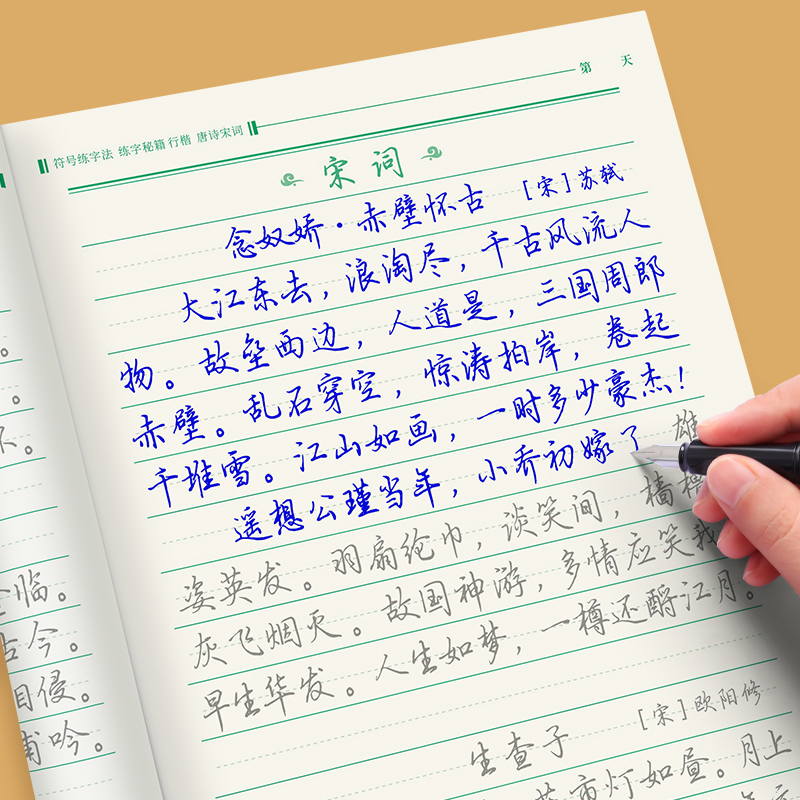 第 天
符号练字法 练字秘籍 行楷 唐诗宋词
宋词
念奴娇·赤壁怀古 [宋]苏轼
大江东去，浪淘尽，千古风流人
物。故垒西边，人道是，三国周郎
赤壁。乱石穿空，惊涛拍岸，卷起
千堆雪。江山如画，一时多少豪杰！
遥想公瑾当年，小乔初嫁了 雄
姿英发。羽扇纶巾，谈笑间，樯橹
灰飞烟灭。故国神游，多情应笑我
早生华发。人生如梦，一樽还酹江月。
生查子 [宋]欧阳修
市灯如昼。月上
。
。
临。
古今。
相侵。
甫吟。